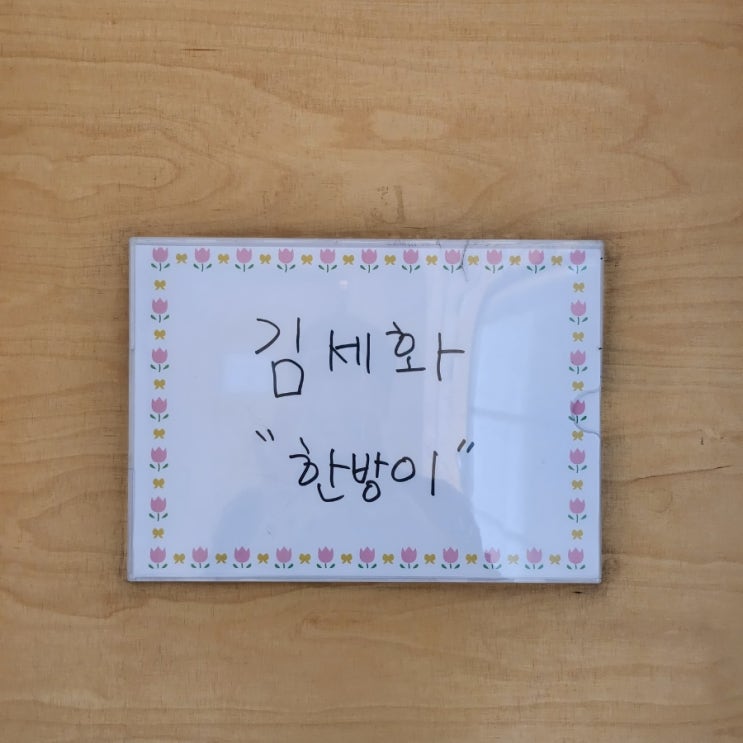 김세화
"한방이"